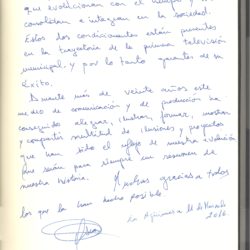 que evolucionan con el tiempo y se
consolidan e integran en la sociedad.
Estos dos condicionantes están presentes
en la trayectoria de la primera televisión
municipal. y por lo tanto garantes de su
éxito.
Durante más de veinte años este
medio de comunicación y de producción ha
conseguido alegrar, ilustrar, formar, mostrar
y compartir multitud de ilusiones y proyectos
que han sido el reflejo de nuestra evolución
que serán para siempre un resumen de
nuestra historia.
Muchas gracias a todos
los que lo han hecho posible.
La Algaba a de
2016